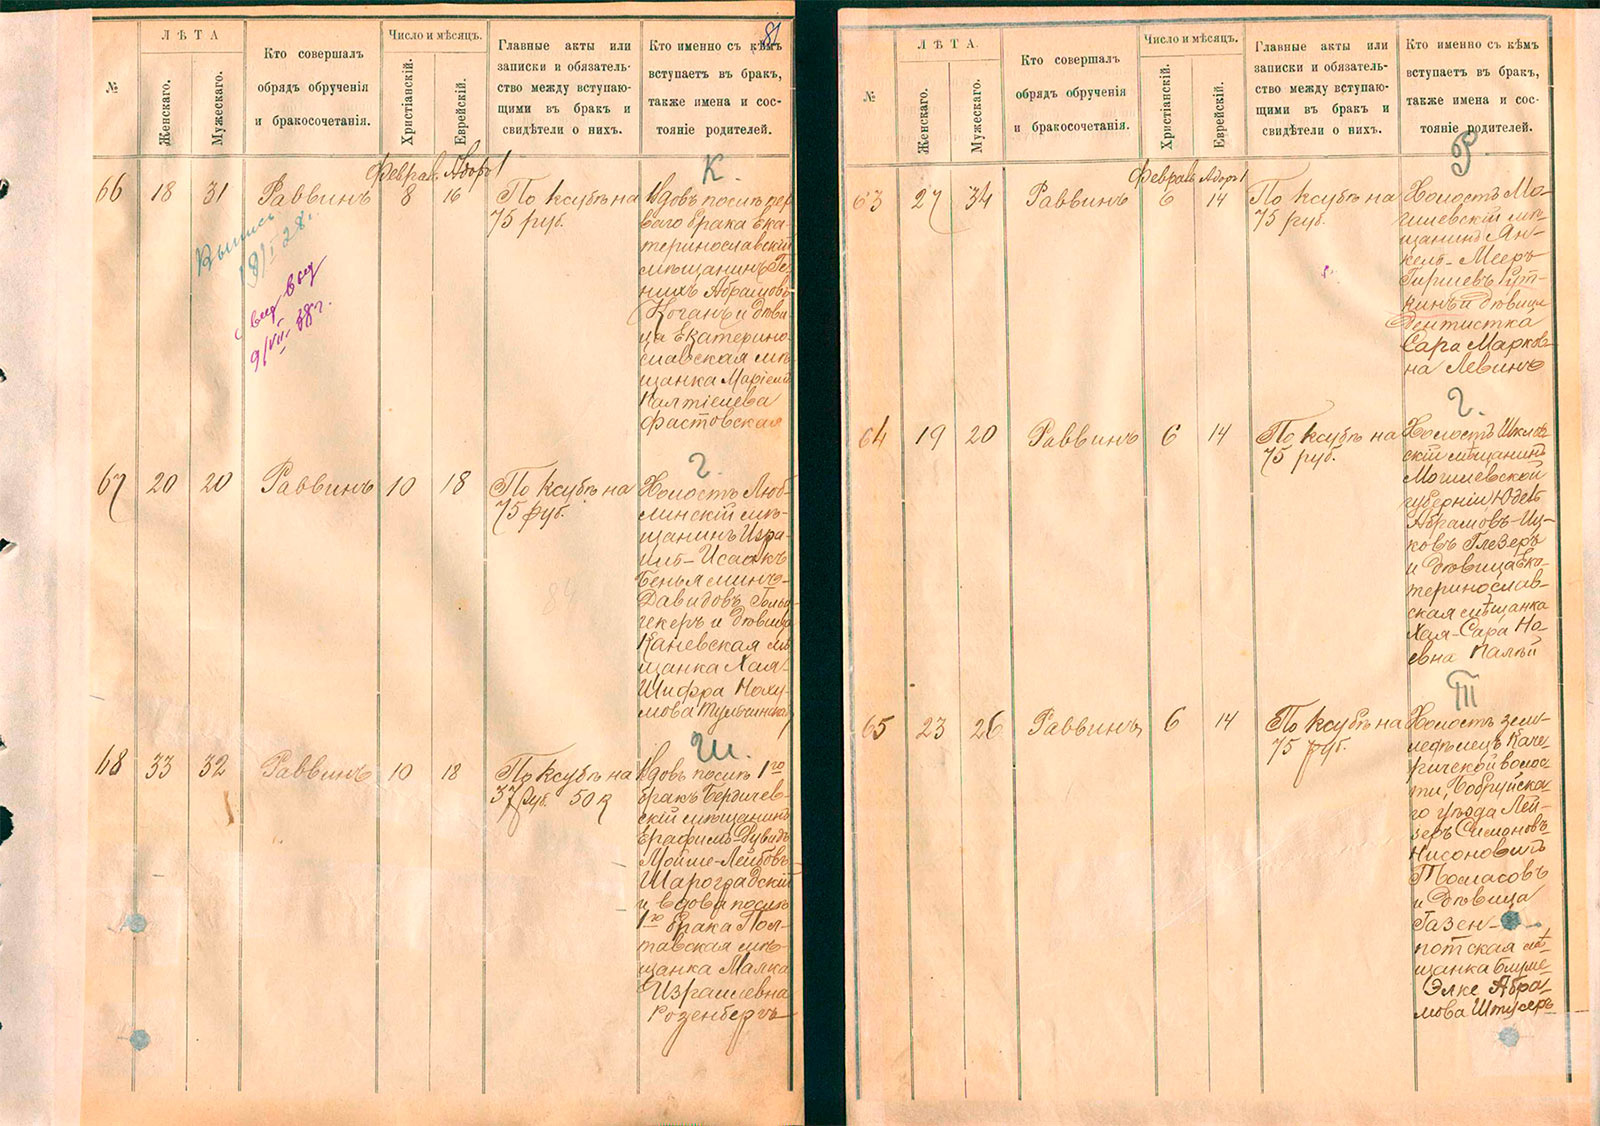 81
№
ЛѢТА
Женскаго.
Мужескаго.
Кто совершалъ
обрядъ обрученія
и бракосочетанія.
Число и мѣсяцъ.
Христіанскій.
Еврейскій.
Главные акты или
записки и обязатель-
ство между вступаю-
щими въ бракъ и
свидѣтели о нихъ.
Кто именно съ кѣмъ
вступаетъ въ бракъ,
также имена и сос-
тояніе родителей.
Феврал. Адоръ 1
К.
66 18 31 Раввинъ 8 16 По ксубѣ на
75 руб.
Вдовъ послѣ пер
ваго брака Ека-
теринославскій
мѣщанинъ Ге-
нихъ Абрамовъ
Коганъ и дѣви-
ца Екатерино-
славская мѣ
щанка Маріемъ
Калтіелева
Фастовская
Выпись
9/VII 38 г.
Г.
67 20 20 Раввинъ 10 18 По ксубѣ на
75 руб.
Холостъ Люб-
линскій мѣ-
щанинъ Изра-
иль-Исаакъ
Беньяминъ-
Давидовъ
гекеръ и дѣвица
Каневская мѣ
щанка Хая-
ШифраНоху-
мова Тульчинская
Ш.
68 33 32 Раввинъ 10 18 По ксубѣ на
37 руб. 50 к
Вдовъ послѣ 1го
брака Бердичев-
скій мѣщанинъ
Ерафимъ-Дувидъ
Мойше-Лейбовъ
Шароградскій
и вдова послѣ
1го брака Пол-
тавская мѣ-
щанка Малка
Израилевна
Розенбергъ
№
ЛѢТА.
Женскаго.
Мужескаго.
Кто совершалъ
обрядъ обрученія
и бракосочетанія.
Число и мѣсяцъ.
Христіанскій.
Еврейскій.
Главные акты или
записки и обязатель-
ство между вступаю-
щими въ бракъ и
свидѣтели о нихъ.
Кто именно съ кѣмъ
вступаетъ въ бракъ,
также имена и сос-
тояніе родителей.
Февраль Адоръ 1
Р.
63 27 34 Раввинъ 6 14 По ксубѣ на
75 руб.
Холостъ Мо-
гилевскій мѣ-
щанинъ Ян-
кель-Мееръ
Гиршевъ Рут-
кинъ и дѣвица
Дентистка
Сара Марков-
на Левинъ
Г.
64 19 20 Раввинъ 6 14 По ксубѣ на
75 руб.
Холостъ Шклов-
скій мѣщанинъ
Могилевской
губерніи Юдель
Абрамовъ-Иц-
ковъ Глезеръ
и дѣвица Ека-
теринослав-
ская мѣщанка
Хая-Сара Но-
евна Палѣй
Т
65 23 26 Раввинъ 6 14 По ксубѣ на
75 руб.
Холостъ земле-
дѣлецъ Каче-
ричской волос-
ти, Бобруйска-
го уѣзда Лей-
зеръ Симоновъ-
Нисоновичъ
Томасовъ
и дѣвица
Газен-
потская мѣ-
щанка Блуме-
Элке Абра-
мова